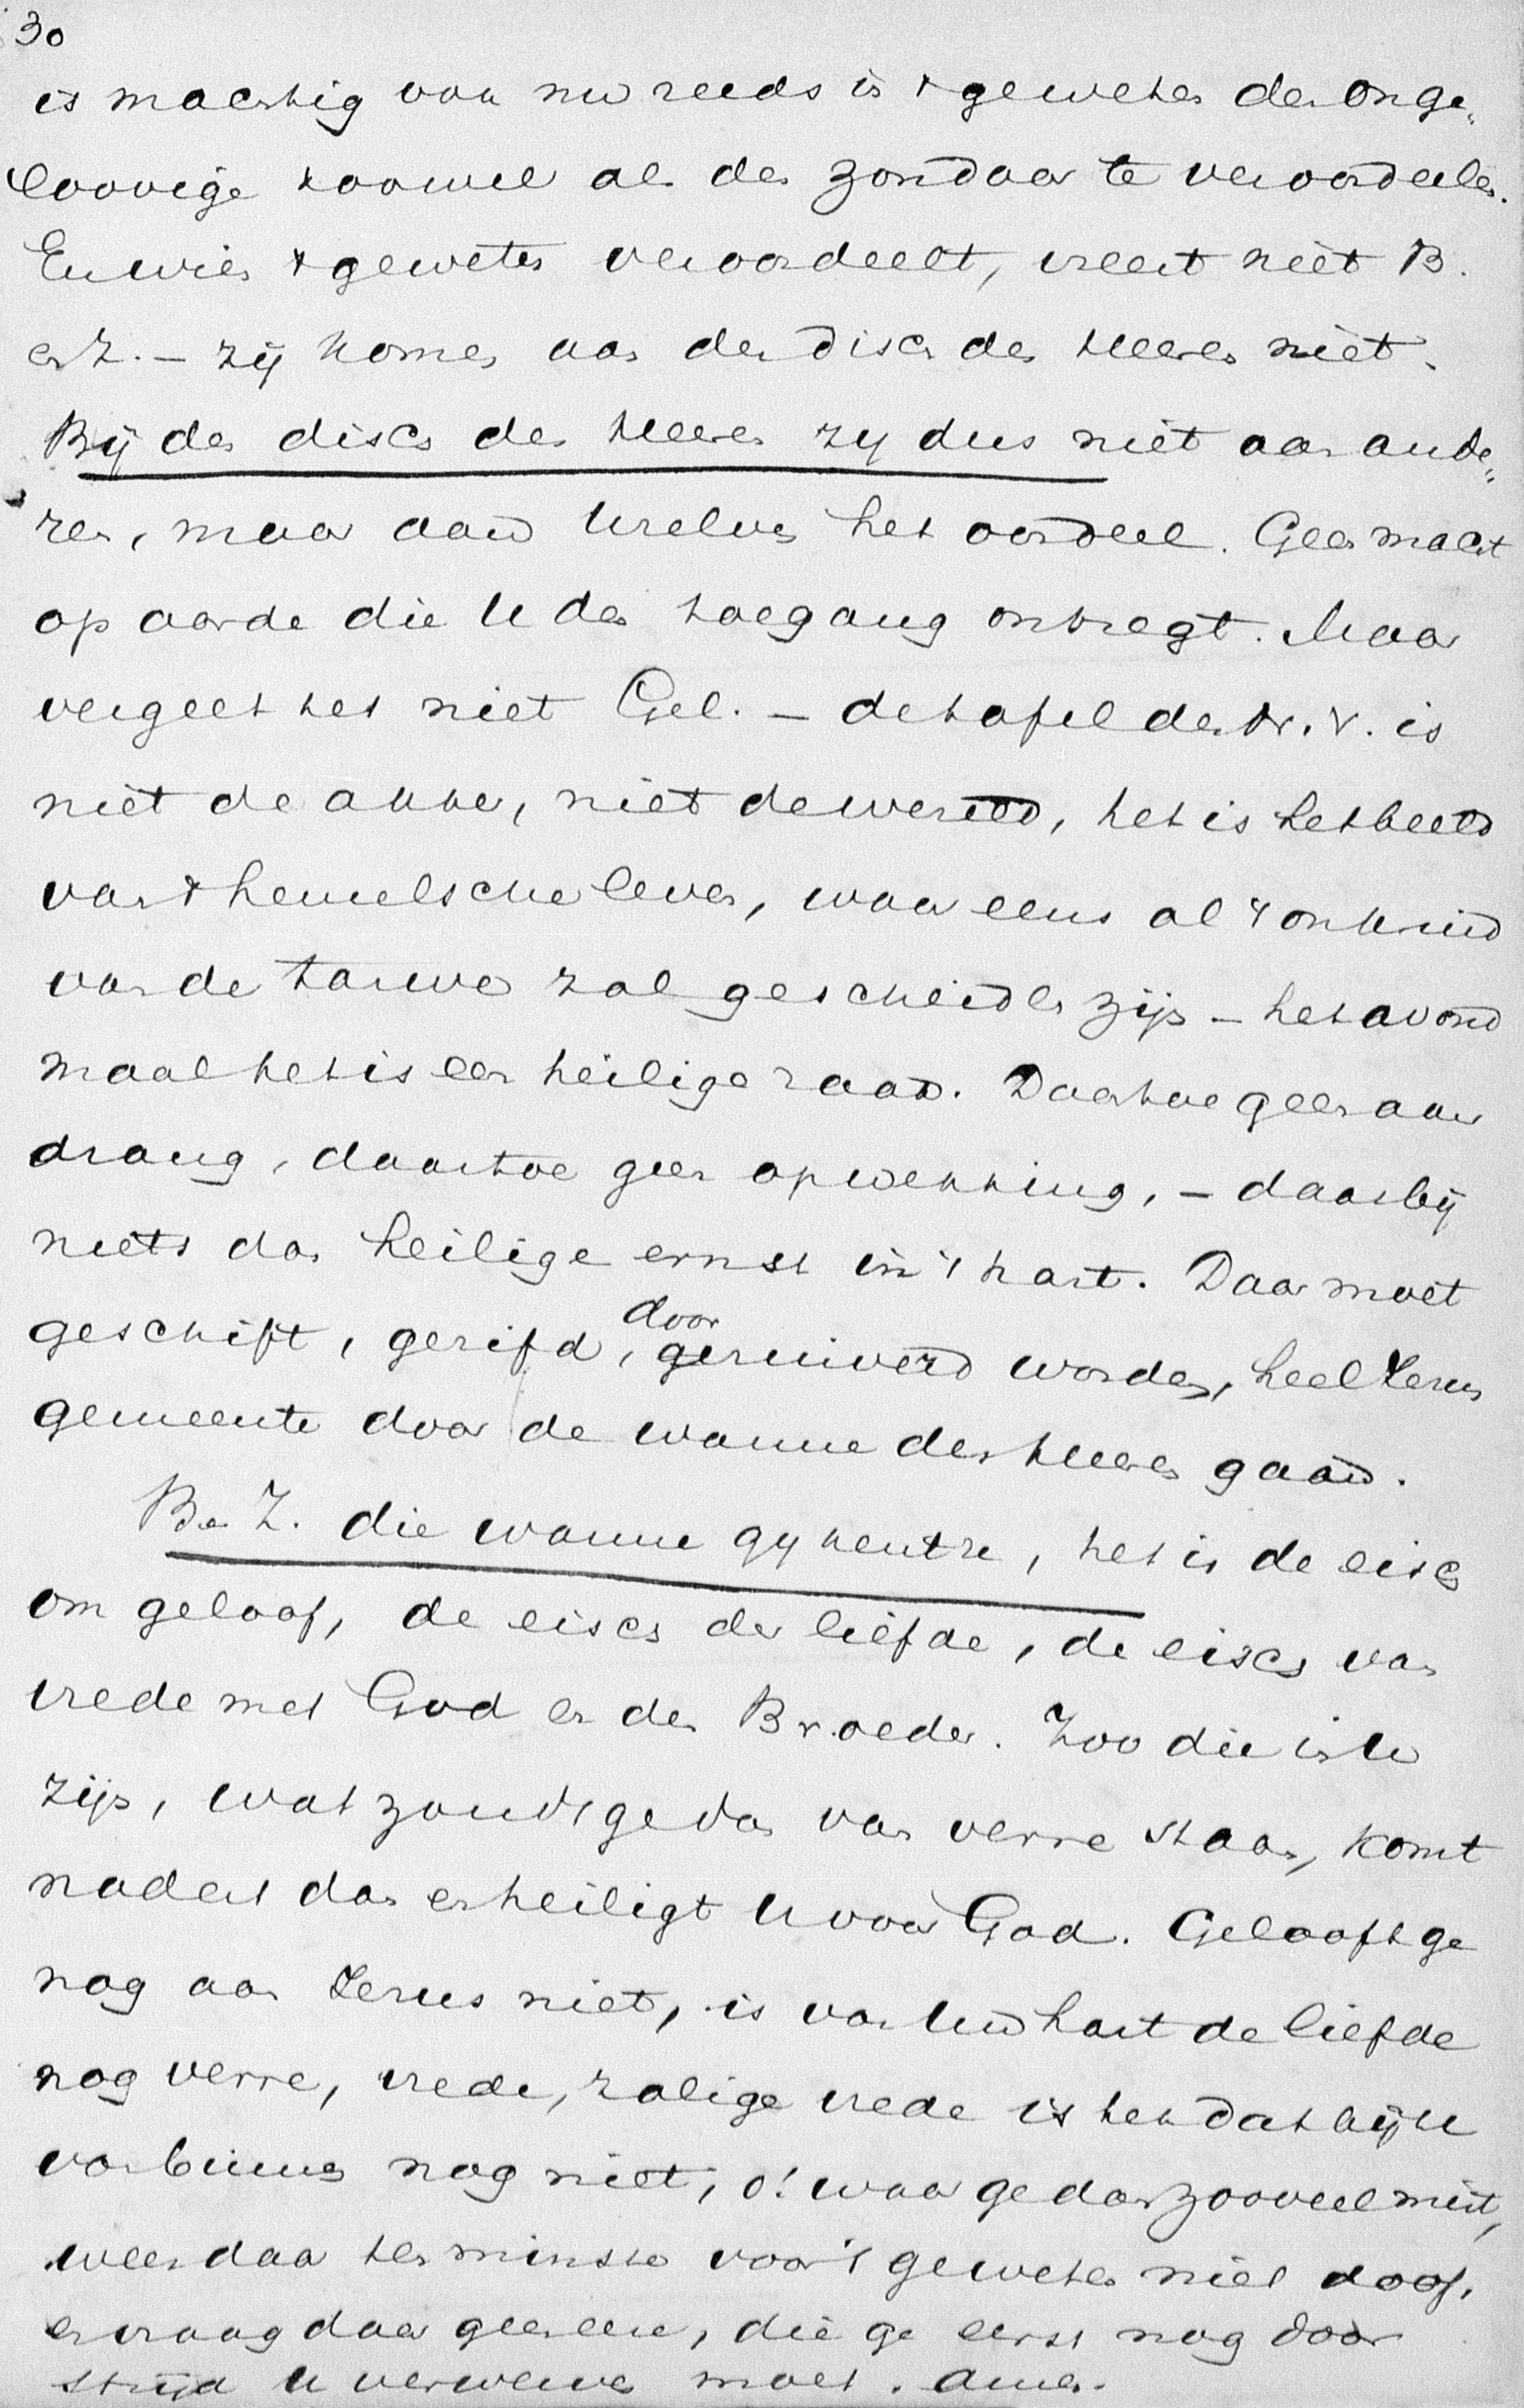 30
is machtig om nu reeds in 't geweten den onge„
loovige zoowel als den zondaar te veroordeelen.
En wien 't geweten veroordeelt, vreest niet B.
en Z. – zij komen aan den disch des Heeren niet.
Bij den disch des Heeren zy dus niet aan ande„
ren, maar aan Uzelven het oordeel. Geen macht
op aarde die U den toegang ontzegt. Maar
vergeet het niet Gel. – de tafel des N. V. is
niet de akker, niet de wereld, het is het beeld
van 't hemelsche leven, waar eens al 't onkruid
van de tarwe zal gescheiden zijn – het avond
maal het is een heilige zaak. Daartoe geen aan
drang, daartoe geen opwekking, – daarbij
niets dan heilige ernst in 't hart. Daar moet
geschift, gezifd, door
gezuiverd worden, heel Jezus
gemeente door de wanne des Heeren gaan.
B en Z. die wanne gy kentze, het is de eisch
om geloof, de eisch der liefde, de eisch van
vrede met God en den Broeder. Zoo die in U
zijn, wat zoudt ge dan van verre staan, komt
nadert dan en heiligt U voor God. Gelooft ge
nog aan Jezus niet, is van Uw hart de liefde
nog verre, vrede, zalige vrede is het dat bij U
van binnen nog niet, o! waar ge dan zooveel mist,
wees daar ten minste voor 't geweten niet doof,
en vraag daar geen eere, die ge eerst nog door
strijd U verwerven moet. Amen.